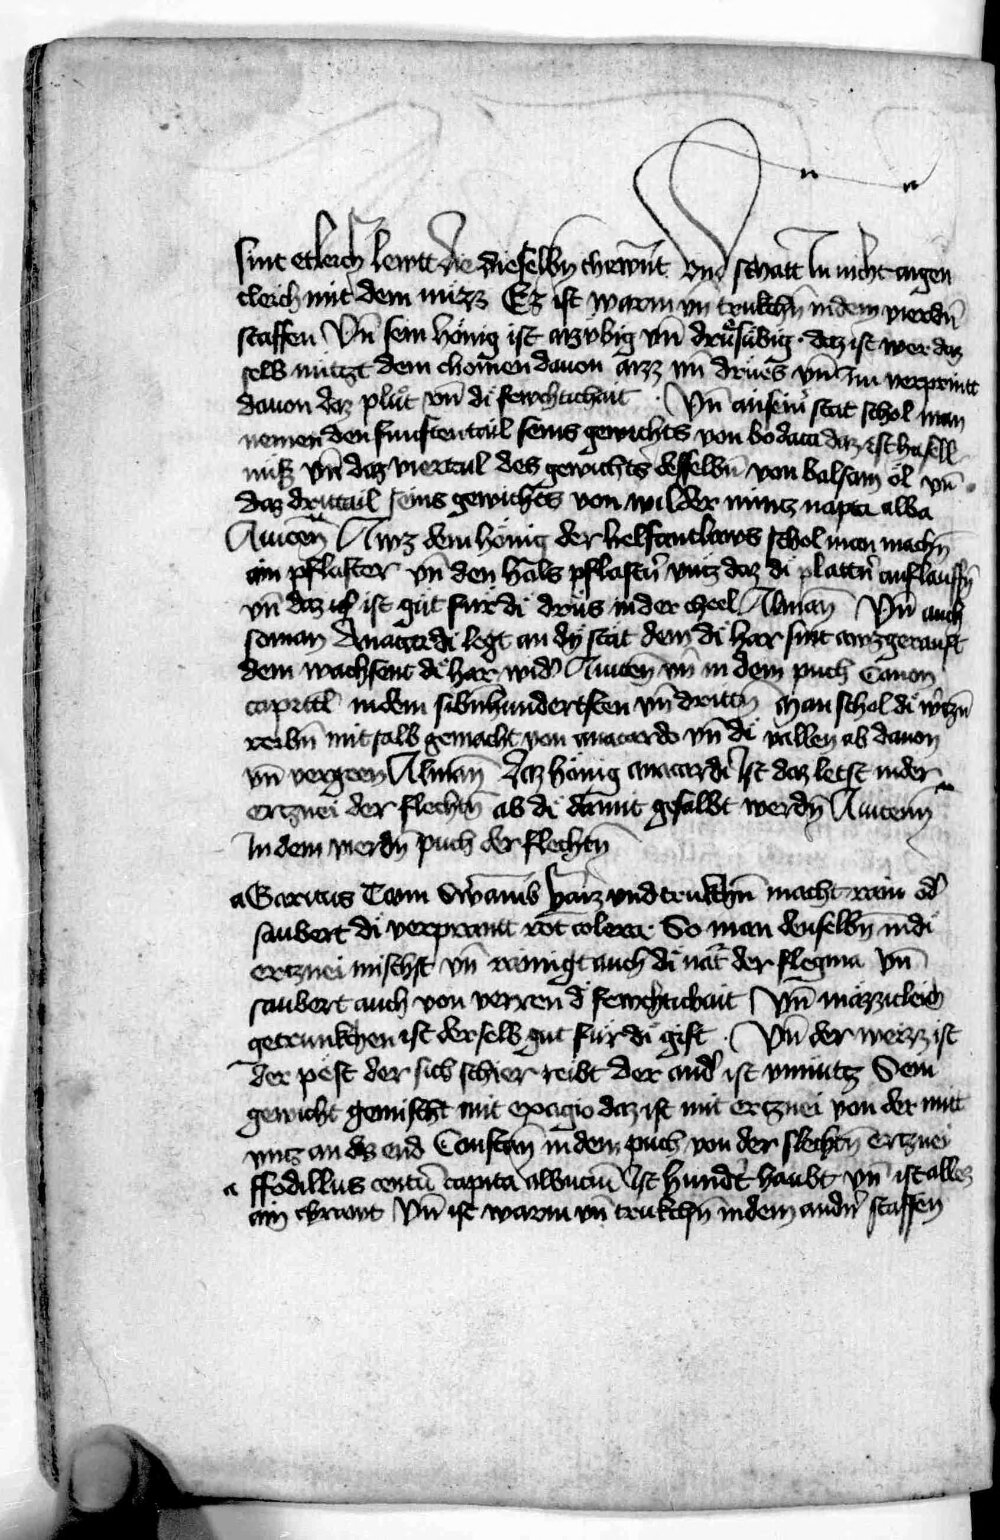 sint etleich lewtt die dieselbn̄ chewnt vnd schatt In nicht aigen
tleich mit dem nüzz Ez ist warm vn̄ trukchn̄ in dem vierdn̄
staffen Vn̄ sein hönig ist aizzubig vn̄ drüsübig · daz ist wer daz
selb nützt dem chomen davon aizz vn̄ drües vn̄ Im verprintt
davon daz plüt vn̄ di fewchtichait · Vn̄ an seinr̄ stat schol man
nemen den funften tail seins gewichts von bodaca daz ist hasell
nüß vn̄ daz viertail des gewichts desselbn̄ von balsam öl vn̄
daz drittail seins gewichts von wilder mintz napta alba
Auicen̄ Awz dem hönig der helfantlaws schol man machn̄
ain pflaster vn̄ den hals pflastn̄ vntz daz di plattn̄ auflauffn̄
vn̄ daz ist güt für di drüs in der cheel Alman̄ Vn̄ auch
so man Anacardi legt an dy stat dem di har sint awzgerauft
dem wachsent di har wid̄ Auicen̄ vn̄ in dem puch Canon
capittl in dem sibnhundertsten vn̄ drittn̄ Man schol di wertzn̄
reibn̄ mit salb gemacht von anacardo vn̄ di vallen ab davon
vn̄ vergeen Alman̄ Daz hönig anacardi Ist daz letst in der
ertznei der flechtn̄ ab di damit gesalbt werdn̄ Auicenn̄
In dem vierdn̄ puch der flechtn̄
a Garicus Tam Swamb haiz vnd trukchn̄ macht rain od̄
saubert di verprantt rot colera · So man denselbn̄ in di
ertznei mischt vn̄ rainigt auch di nat̄ der flegma Vn̄
saubert auch von verren d fewchtichait Vn̄ mäzzicleich
getrunkchen ist derselb gut für di gift · Vn̄ der weizz ist
der pest der sich schier reibt der and̄ ist vnnütz Sein
gewicht gemischt mit exagio daz ist mit ertznei von der mitt
vntz an dz end Constan̄ in dem puch von der slechtn̄ ertznei
a ffodillus centū capita albuciū Ist hundt̄ haubt vn̄ ist allez
ain chrawt Vn̄ ist warm vn̄ trukchn̄ in dem andn̄ staffen